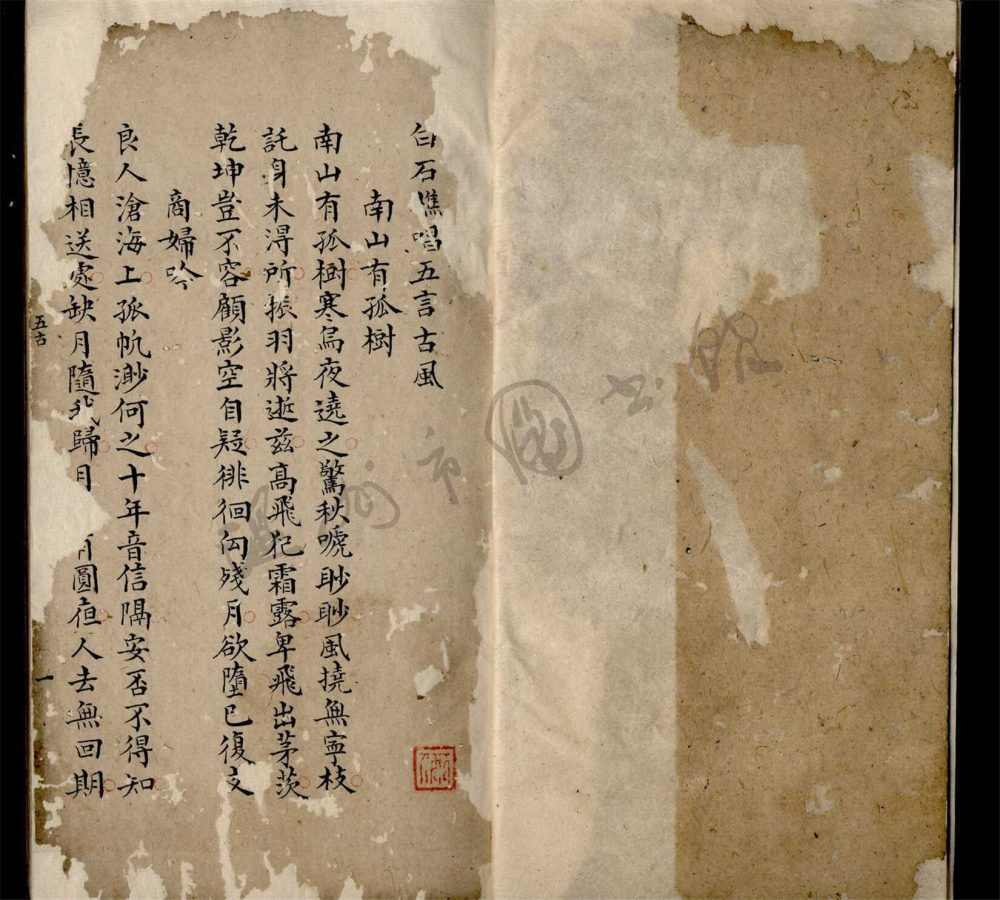 白石樵唱五言古風
南山有孤樹
南山有孤樹寒烏夜遶之驚秋嘑眇眇風撓無寧枝
託身未得所振羽將逝兹高飛犯霜露卑飛出茅茨
乾坤豈不容顧影空自疑徘徊向殘月欲墮已復支
商婦吟
良人滄海上孤帆渺何之十年音信隔安否不得知
長憶相送處缺月隨我歸月 有圓夜人去無回期
五古
一
溫州市圖書館